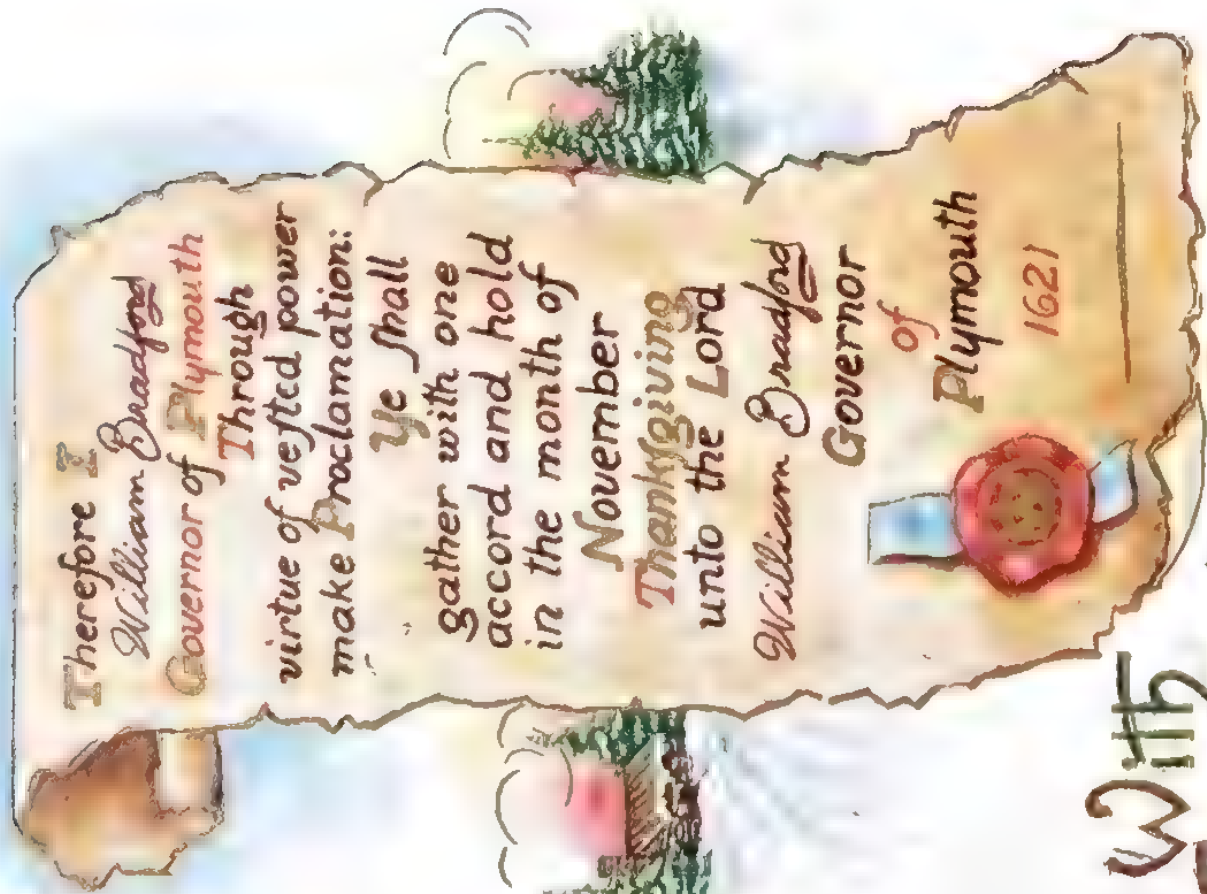 Therefore I
William Bradford
Governor of Plymouth
Through
virtue of vested power
make Proclamation:
Ye ſhall
gather with one
accord and hold
in the month of
November
Thankſgiving
unto the Lord
William Bradford
Governor
of
Plymouth
1621
With